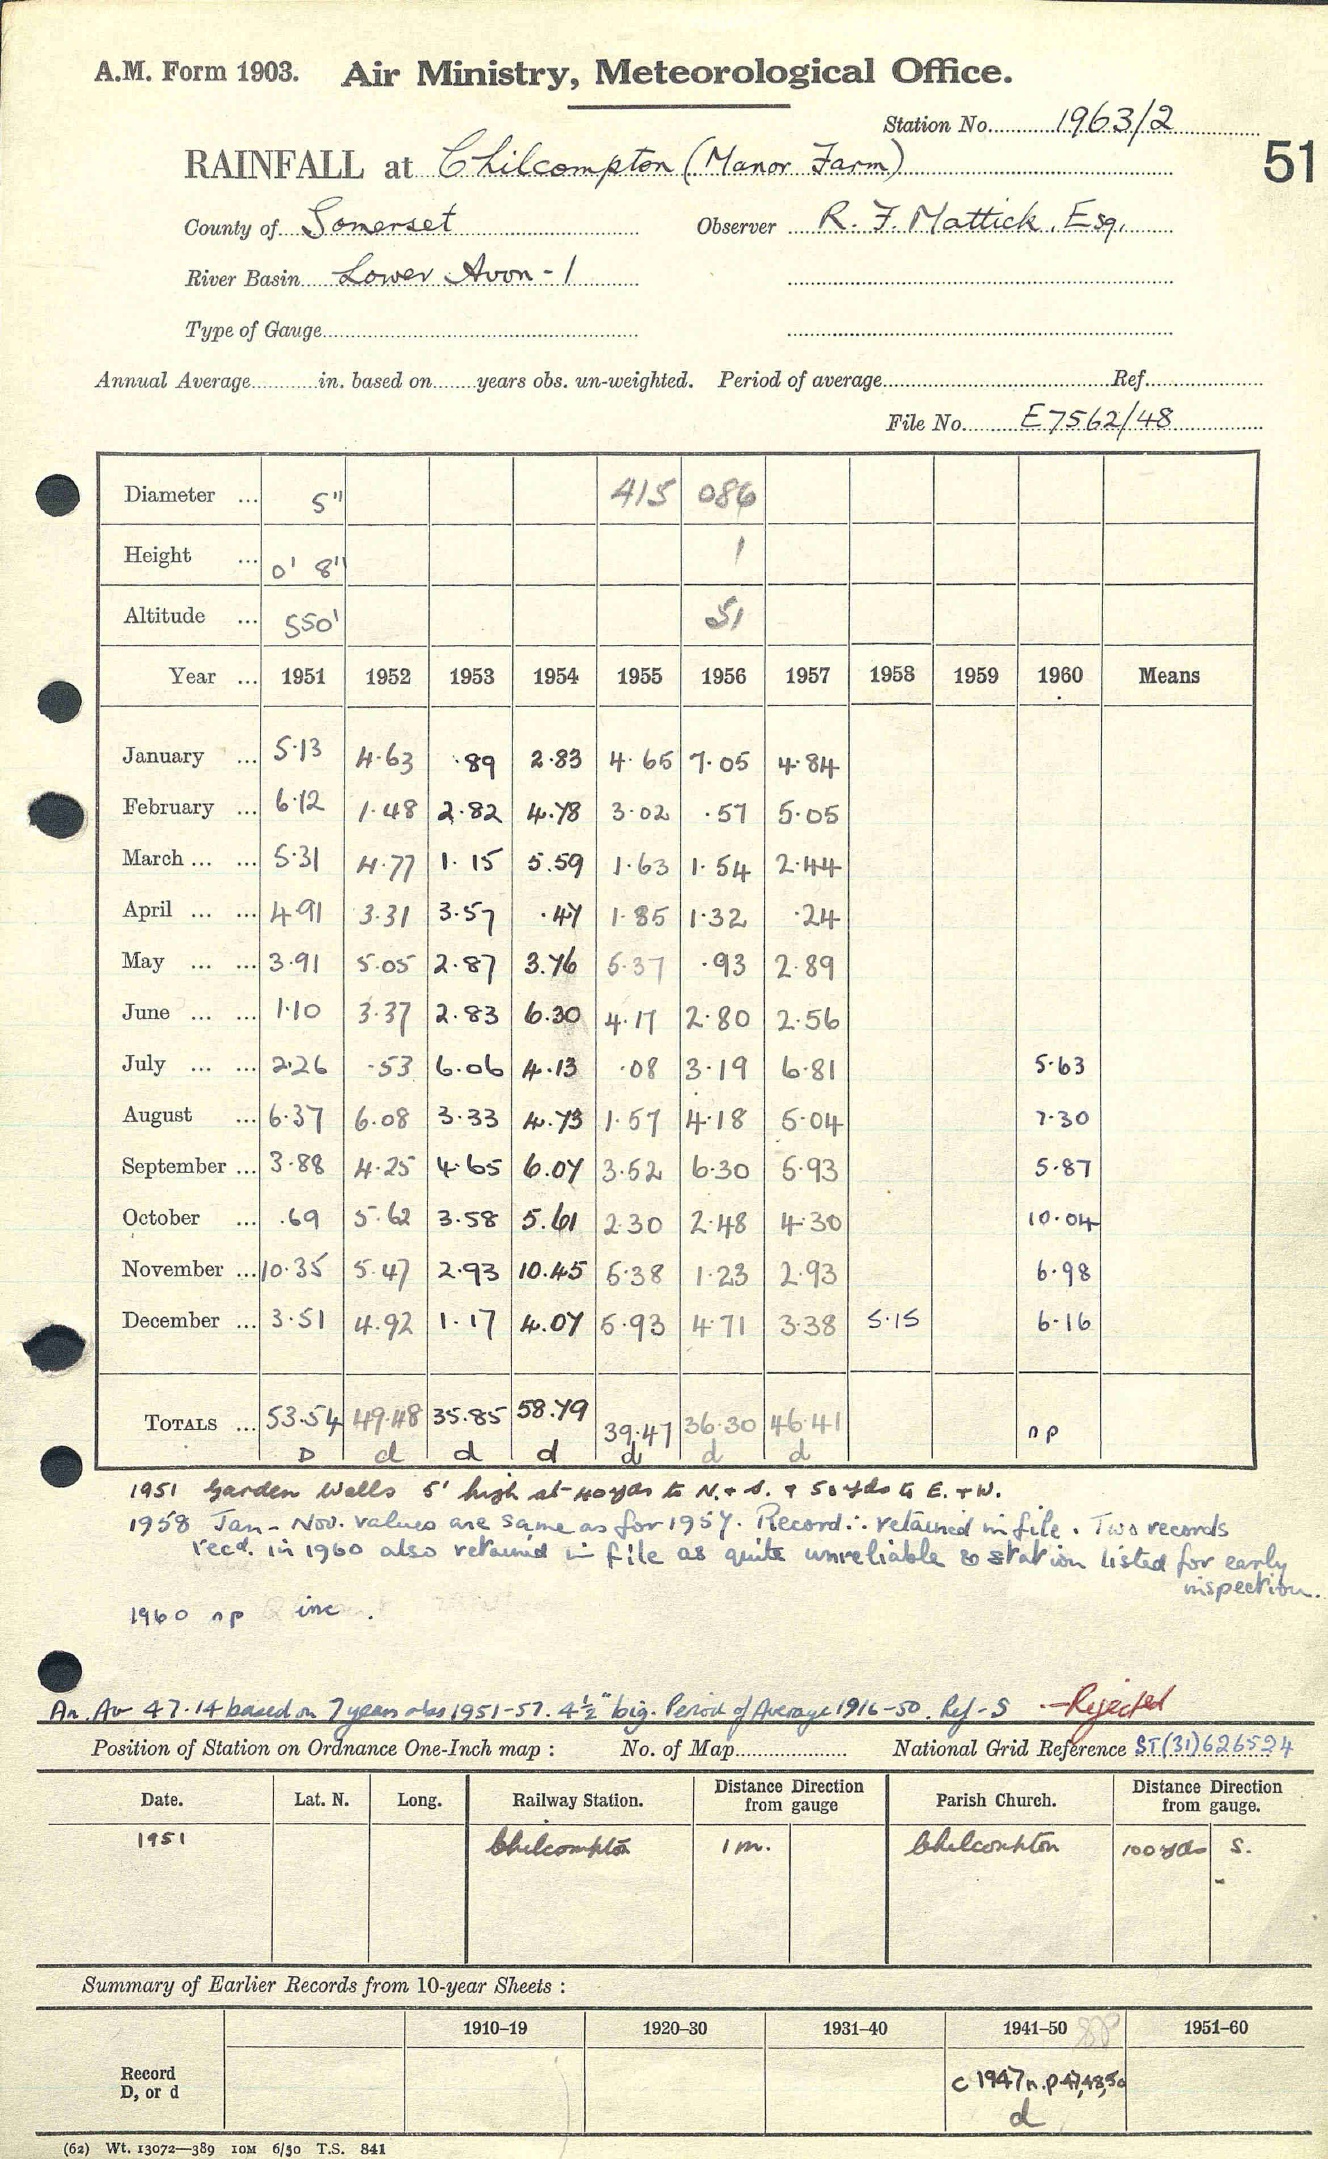 A.M. Form 1903. Air Ministry, Meteorological Office.
Station No. 1963/2
51
RAINFALL at Chilcompton (Manor Farm)
County of Somerset Observer R. F. Mattick, Esq.
River Basin Lower Avon - 1
Type of Gauge
Annual Average in. based on years obs. un-weighted. Period of average Ref.
File No. E7562/48
Diameter ... 5" 415 086
Height ... 0' 8" 1
Altitude ... 550' 51
Year ... 1951 1952 1953 1954 1955 1956 1957 1958 1959 1960 Means
January ... 5·13 4·63 ·89 2·83 4·65 7·05 4·84
February ... 6·12 1·48 2·82 4·78 3·02 ·57 5·05
March ... ... 5·31 4·77 1·15 5.59 1·63 1·54 2·44
April ... ... 4·91 3·31 3·57 ·47 1·85 1·32 ·24
May ... ... 3·91 5·05 2·87 3.76 5·37 ·93 2·89
June ... ... 1·10 3·37 2·83 6.30 4·17 2·80 2·56
July ... ... 2·26 ·53 6·06 4·13 ·08 3·19 6·81 5·63
August ... 6·37 6·08 3·33 4·73 1·57 4·18 5·04 7·30
September ... 3·88 4·25 4·65 6.07 3·52 6·30 5·93 5·87
October ... .69 5·62 3·58 5.61 2·30 2·48 4·30 10·04
November ... 10·35 5·47 2·93 10.45 5·38 1·23 2·93 6·98
December ... 3·51 4·92 1·17 4.07 5·93 4·71 3·38 5·15 6·16
TOTALS ... 53·54 49·48 35·85 58.79 39·47 36·30 46·41 np
D d d d d d d
1951 Garden Walls 5' high at 40yds to N. + S. & 50yds to E. + W.
1958 Jan - Nov. values are same as for 1957. Record ∴ retained in file. Two records
recd. in 1960 also retained in file as quite unreliable & station listed for early
inspection.
1960 np inc.
An. Av 47·14 based on 7 years obs 1951-57. 4½" big. Period of Average 1916-50. Ref - S Rejected
Position of Station on Ordnance One-Inch map : No. of Map National Grid Reference ST(31)626524
Date. Lat. N. Long. Railway Station. Distance Direction from gauge Parish Church. Distance Direction from gauge.
1951 Chilcompton 1 m. Chilcompton 100 yds S.
Summary of Earlier Records from 10-year Sheets :
1910-19 1920-30 1931-40 1941-50 1951-60
Record
D, or d c 1947 n.p 47,48,50
d
(62) Wt. 13072—389 10M 6/50 T.S. 841